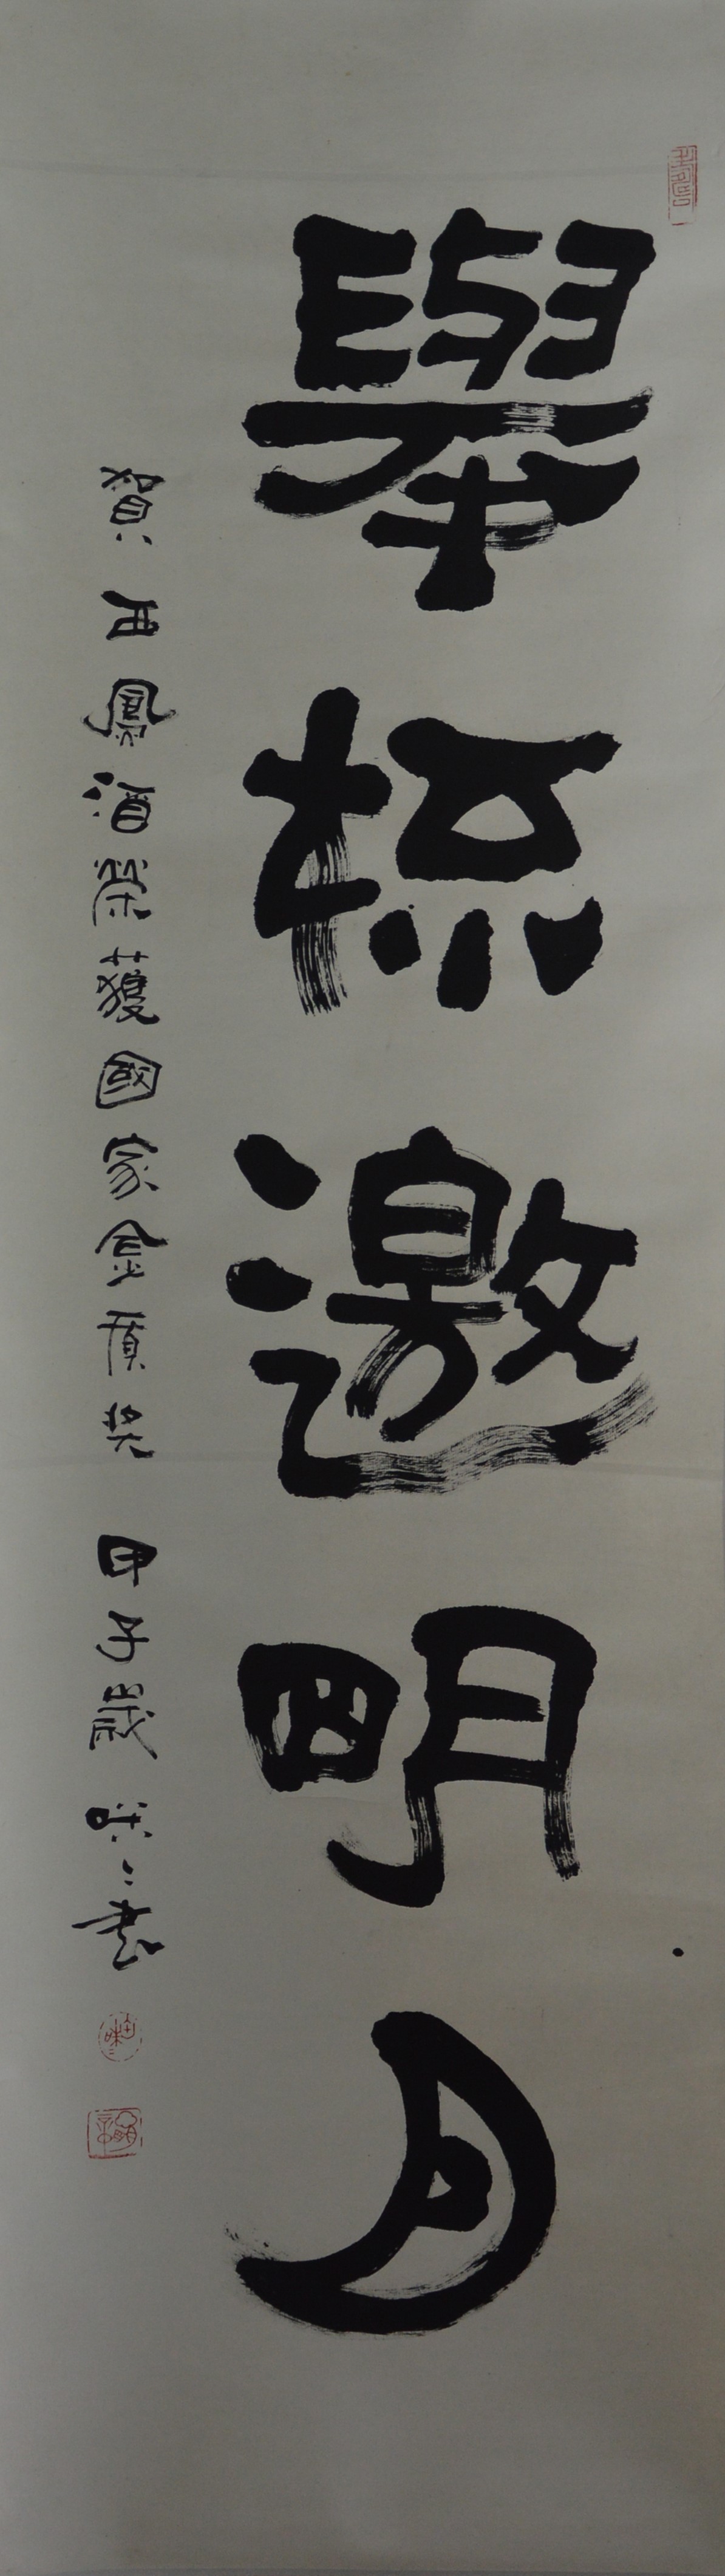 舉杯邀明月
賀西鳳酒榮獲國家金質奖 甲子歲 咲〻書